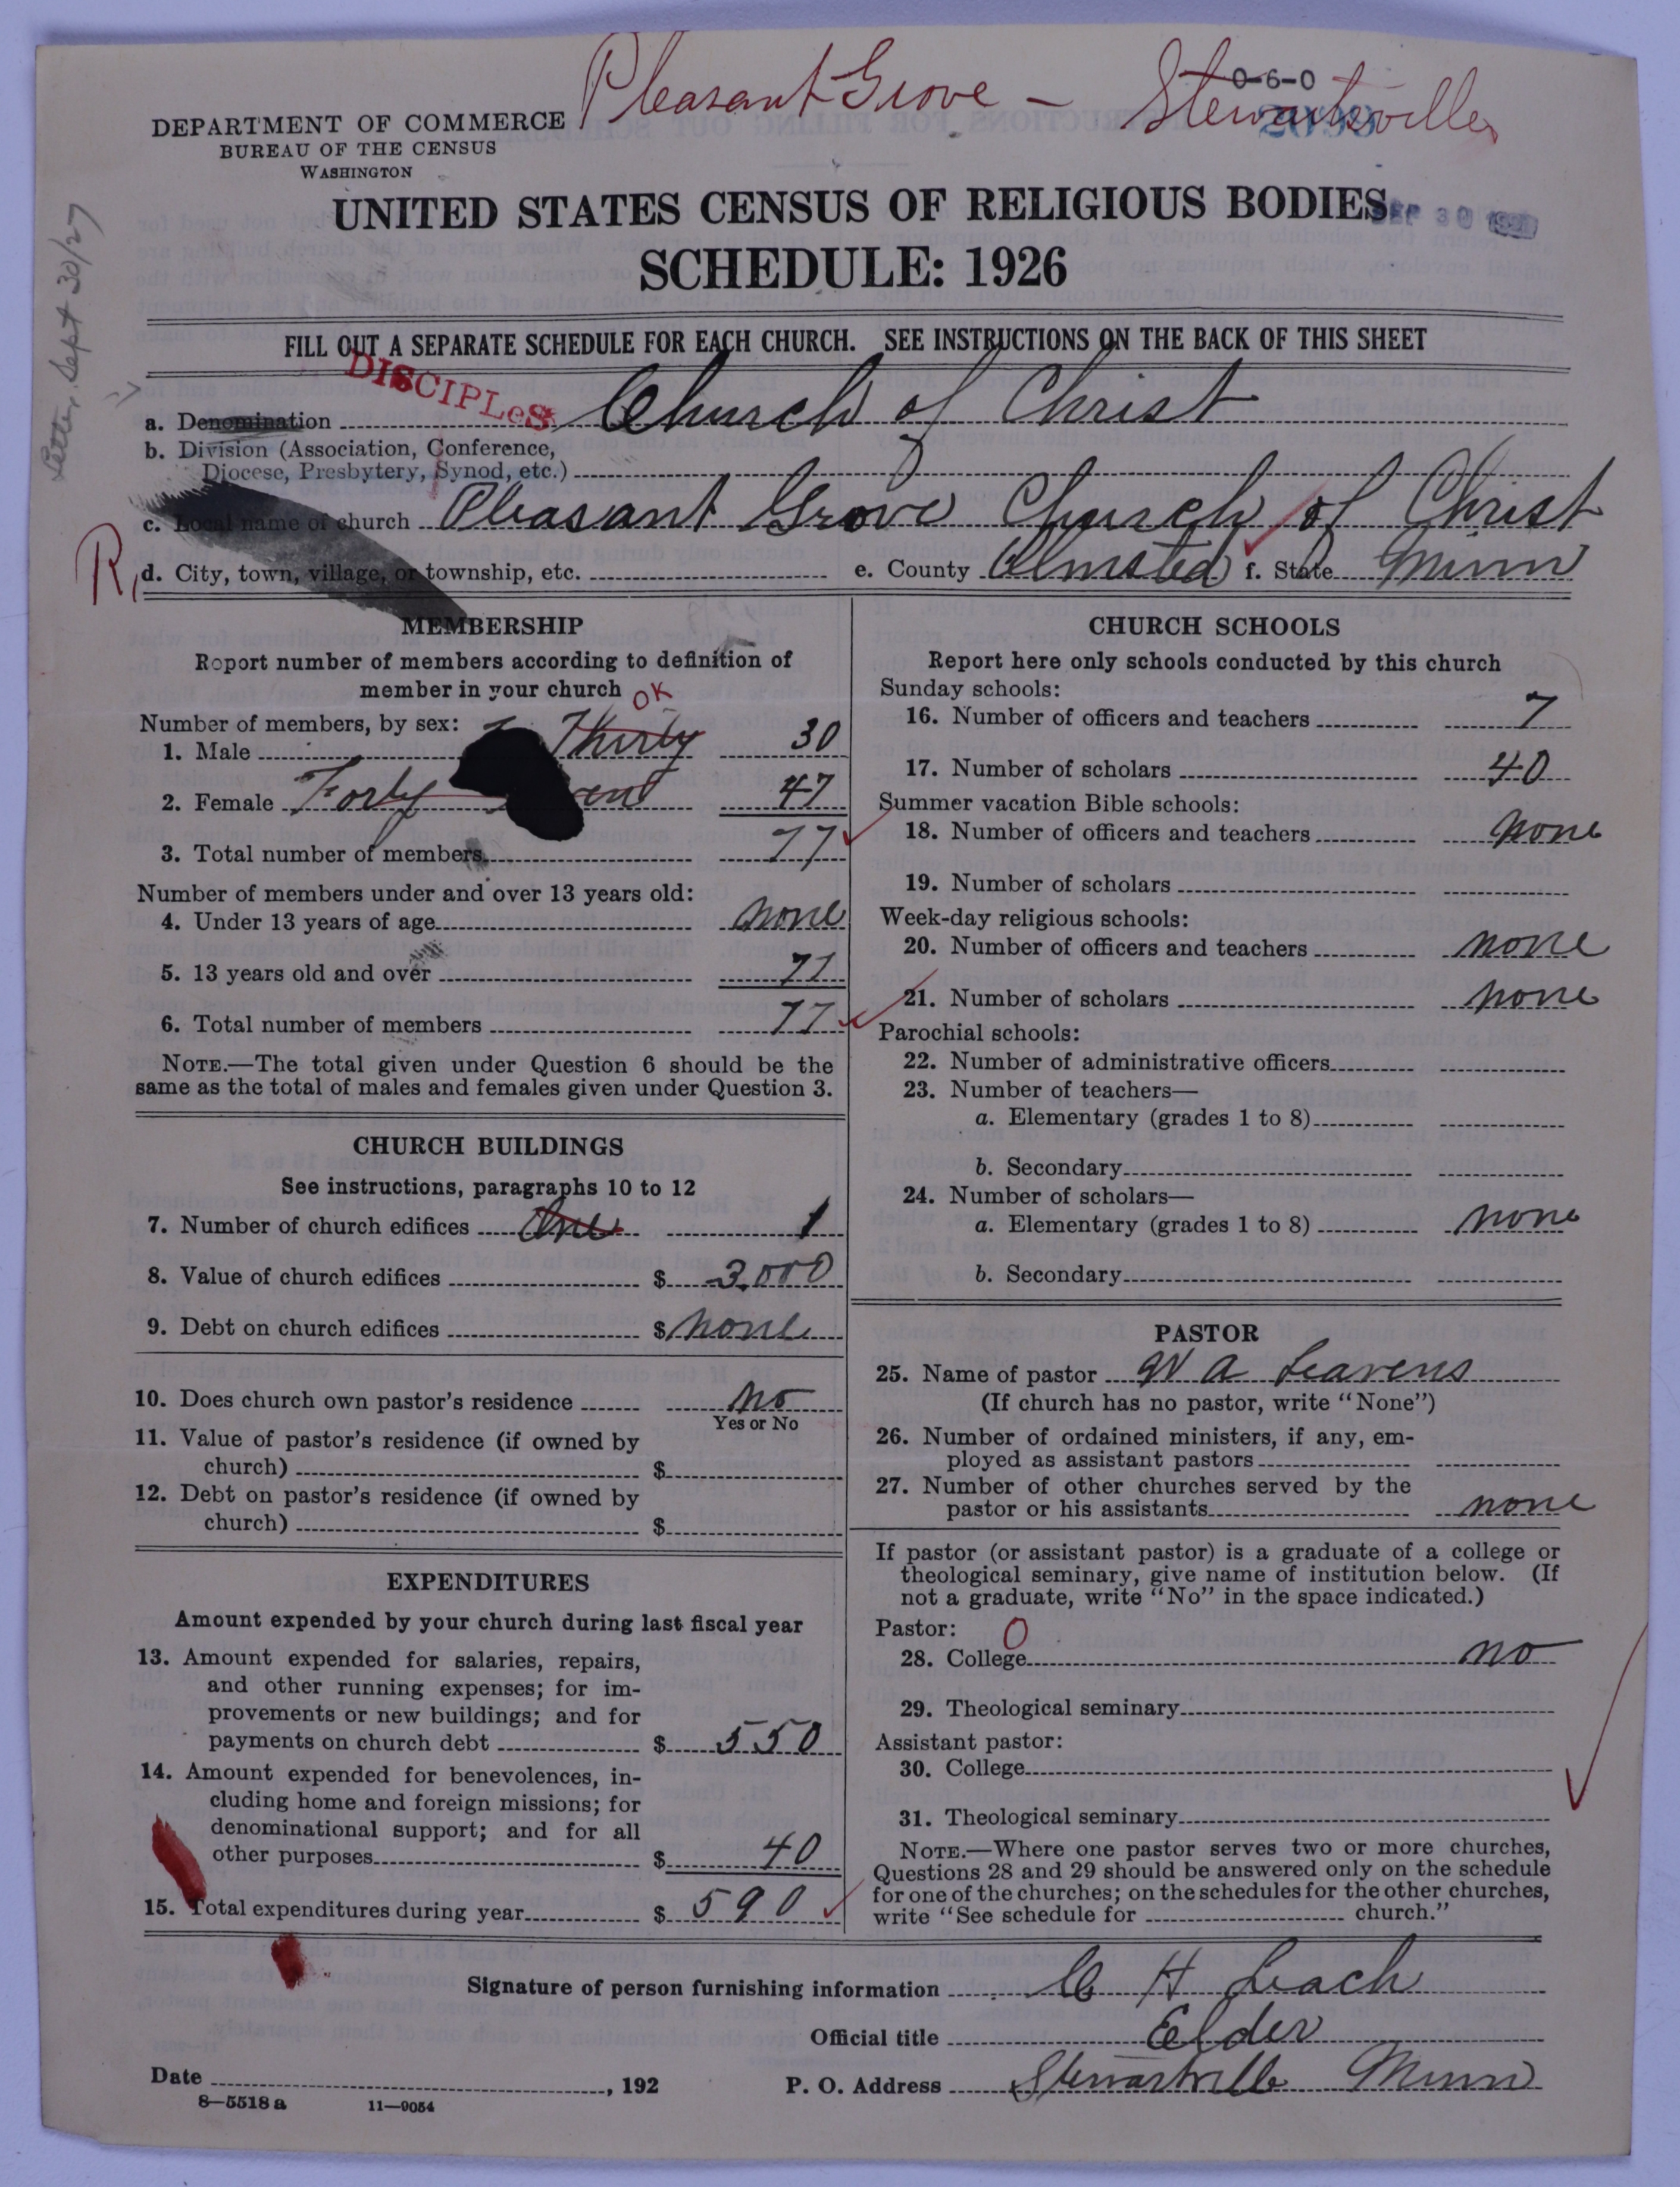 Pleasant Grove - Stewartsville
0-6-0
DEPARTMENT OF COMMERCE
BUREAU OF THE CENSUS
WASHINGTON
UNITED STATES CENSUS OF RELIGIOUS BODIES
SEP 30
SCHEDULE: 1926
Letter, Sept 30/27
FILL OUT A SEPARATE SCHEDULE FOR EACH CHURCH. SEE INSTRUCTIONS ON THE BACK OF THIS SHEET
DISCIPLeS
a. Denomination Church of Christ
b. Division (Association, Conference,
Diocese, Presbytery, Synod, etc.)
c. Local name of church Pleasant Grove Church of Christ
R,
d. City, town, village, or township, etc. e. County Olmsted f. State Minn
MEMBERSHIP
Report number of members according to definition of
member in your church OK
Number of members, by sex:
1. Male Thirty 30
2. Female Forty 47
3. Total number of members 77
Number of members under and over 13 years old:
4. Under 13 years of age none
5. 13 years old and over 77
6. Total number of members 77
NOTE.—The total given under Question 6 should be the
same as the total of males and females given under Question 3.
CHURCH BUILDINGS
See instructions, paragraphs 10 to 12
7. Number of church edifices One 1
8. Value of church edifices $ 3,000
9. Debt on church edifices $ none
10. Does church own pastor's residence No
Yes or No
11. Value of pastor's residence (if owned by
church) $
12. Debt on pastor's residence (if owned by
church) $
EXPENDITURES
Amount expended by your church during last fiscal year
13. Amount expended for salaries, repairs,
and other running expenses; for im-
provements or new buildings; and for
payments on church debt $ 550
14. Amount expended for benevolences, in-
cluding home and foreign missions; for
denominational support; and for all
other purposes $ 40
15. Total expenditures during year $ 590
CHURCH SCHOOLS
Report here only schools conducted by this church
Sunday schools:
16. Number of officers and teachers 7
17. Number of scholars 40
Summer vacation Bible schools:
18. Number of officers and teachers none
19. Number of scholars
Week-day religious schools:
20. Number of officers and teachers none
21. Number of scholars none
Parochial schools:
22. Number of administrative officers
23. Number of teachers—
a. Elementary (grades 1 to 8)
b. Secondary
24. Number of scholars—
a. Elementary (grades 1 to 8) none
b. Secondary
PASTOR
25. Name of pastor W A Leavens
(If church has no pastor, write "None")
26. Number of ordained ministers, if any, em-
ployed as assistant pastors
27. Number of other churches served by the
pastor or his assistants none
If pastor (or assistant pastor) is a graduate of a college or
theological seminary, give name of institution below. (If
not a graduate, write "No" in the space indicated.)
Pastor: 0
28. College no
29. Theological seminary
Assistant pastor:
30. College
31. Theological seminary
NOTE.—Where one pastor serves two or more churches,
Questions 28 and 29 should be answered only on the schedule
for one of the churches; on the schedules for the other churches,
write "See schedule for church."
Signature of person furnishing information C H Leach
Official title Elder
Date , 192 P. O. Address Stewartville Minn
8—5518 a 11—9054